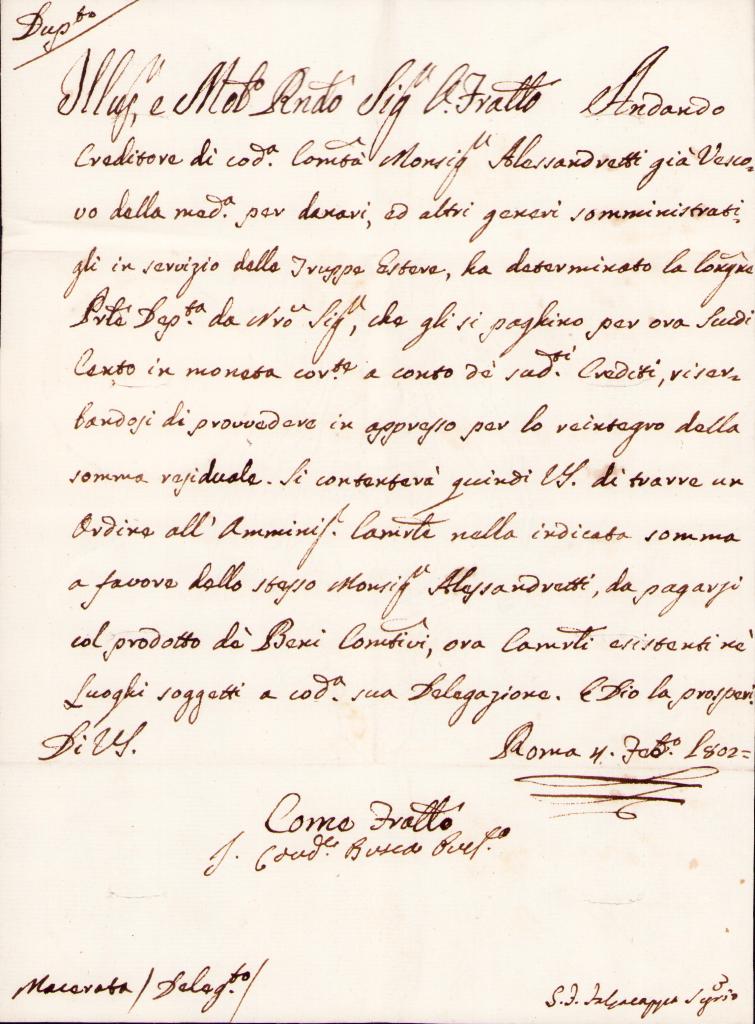 Dup.to
Illus. e Molto Rndo Sigr Fratto Andando
Creditore di cod.a Comtà Monsigr Alessandretti già Vesco-
vo della med.a per danari, ed altri generi somministrati-
gli in servizio delle Truppe Estere, ha determinato la Congne
Prte Dep.ta da Nro Sigr, che gli si paghino per ora Scudi
Cento in moneta cor.te a conto dè sud.ti Crediti, riser-
bandosi di provvedere in appresso per lo reintegro della
somma residuale. Si contenterà quindi VS. di trarre un
Ordine all' Amminis. Camrle nella indicata somma
a favore dello stesso Monsigr Alessandretti, da pagarsi
col prodotto dè Beni Comtivi, ora Camrli esistenti nè
Luoghi soggetti a cod.a sua Delegazione. E Dio la prosperi
Di VS.
Roma 4. Feb.o 1802=
Come Fratto
Busca
Macerata / Deleg.to /